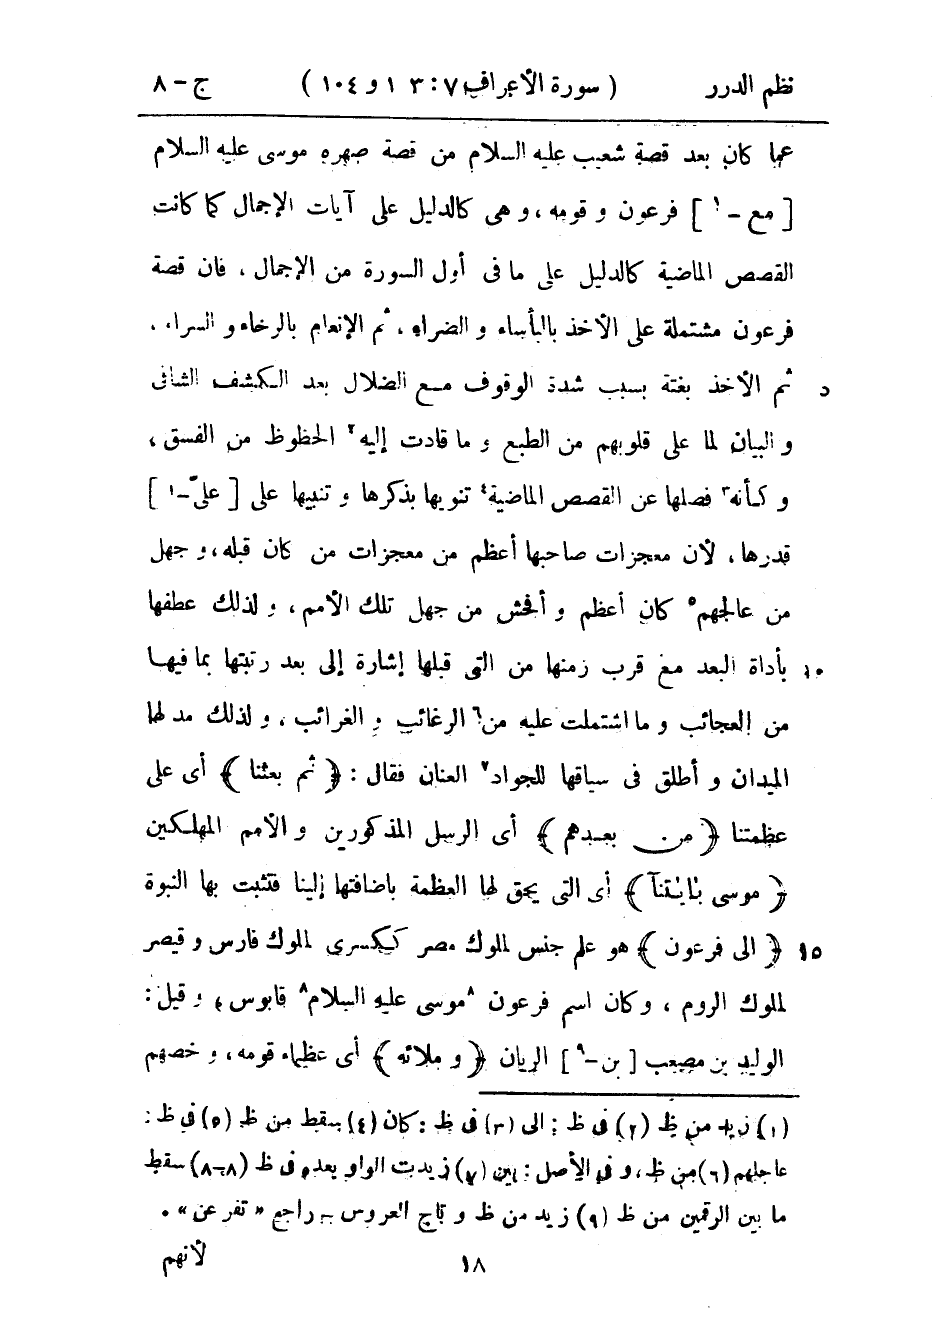 نظم الدرر ( سورة الأعراف ٧ : ١٠٣ و ١٠٤ ) ج - ٨
عما كان بعد قصة شعيب عليه السلام من قصة صهره موسى عليه السلام
[ مع - ١ ] فرعون و قومه ، و هى كالدليل على آيات الإجمال كما كانت
القصص الماضية كالدليل على ما فى أول السورة من الإجمال ، فان قصة
فرعون مشتملة على الأخذ بالبأساء و الضراء ، ثم الإنعام بالرخاء و السراء ،
٥ ثم الأخذ بغتة بسبب شدة الوقوف مع الضلال بعد الكشف الشافى
و البيان لما على قلوبهم من الطبع و ما قادت إليه ٢ الحظوظ من الفسق ،
و كأنه ٣ فصلها عن القصص الماضية ٤ تنويها بذكرها و تنبيها على [ علىّ - ١ ]
قدرها ، لأن معجزات صاحبها أعظم من معجزات من كان قبله ، و جهل
من عالجهم ٥ كان أعظم و أفحش من جهل تلك الأمم ، و لذلك عطفها
١٠ بأداة البعد مع قرب زمنها من التى قبلها إشارة إلى بعد رتبتها بما فيها
من العجائب و ما اشتملت عليه من ٦ الرغائب و الغرائب ، و لذلك مد لها
الميدان و أطلق فى سياقها للجواد ٧ العنان فقال : ﴿ ثم بعثنا ﴾ أى على
عظمتنا ﴿ من بعدهم ﴾ أى الرسل المذكورين و الأمم المهلكين
﴿ موسى بٰايٰتنآ ﴾ أى التى يحق لها العظمة باضافتها إلينا فتثبت بها النبوة
١٥ ﴿ الى فرعون ﴾ هو علم جنس لملوك مصر ككسرى لملوك فارس و قيصر
لملوك الروم ، و كان اسم فرعون ٨ موسى عليه السلام ٨ قابوس ، و قيل :
الوليد بن مصعب [ بن - ٩ ] الريان ﴿ و ملائه ﴾ أى عظماء قومه ، و خصهم
(١) زيد من ظ (٢) فى ظ : الى (٣) فى ظ : كان (٤) سقط من ظ (٥) فى ظ :
عاجلهم (٦) من ظ ، و فى الأصل : بين (٧) زيدت الواو بعده فى ظ (٨-٨) سقط
ما بين الرقمين من ظ (٩) زيد من ظ و تاج العروس - راجع « تفرعن » .
١٨ لأنهم